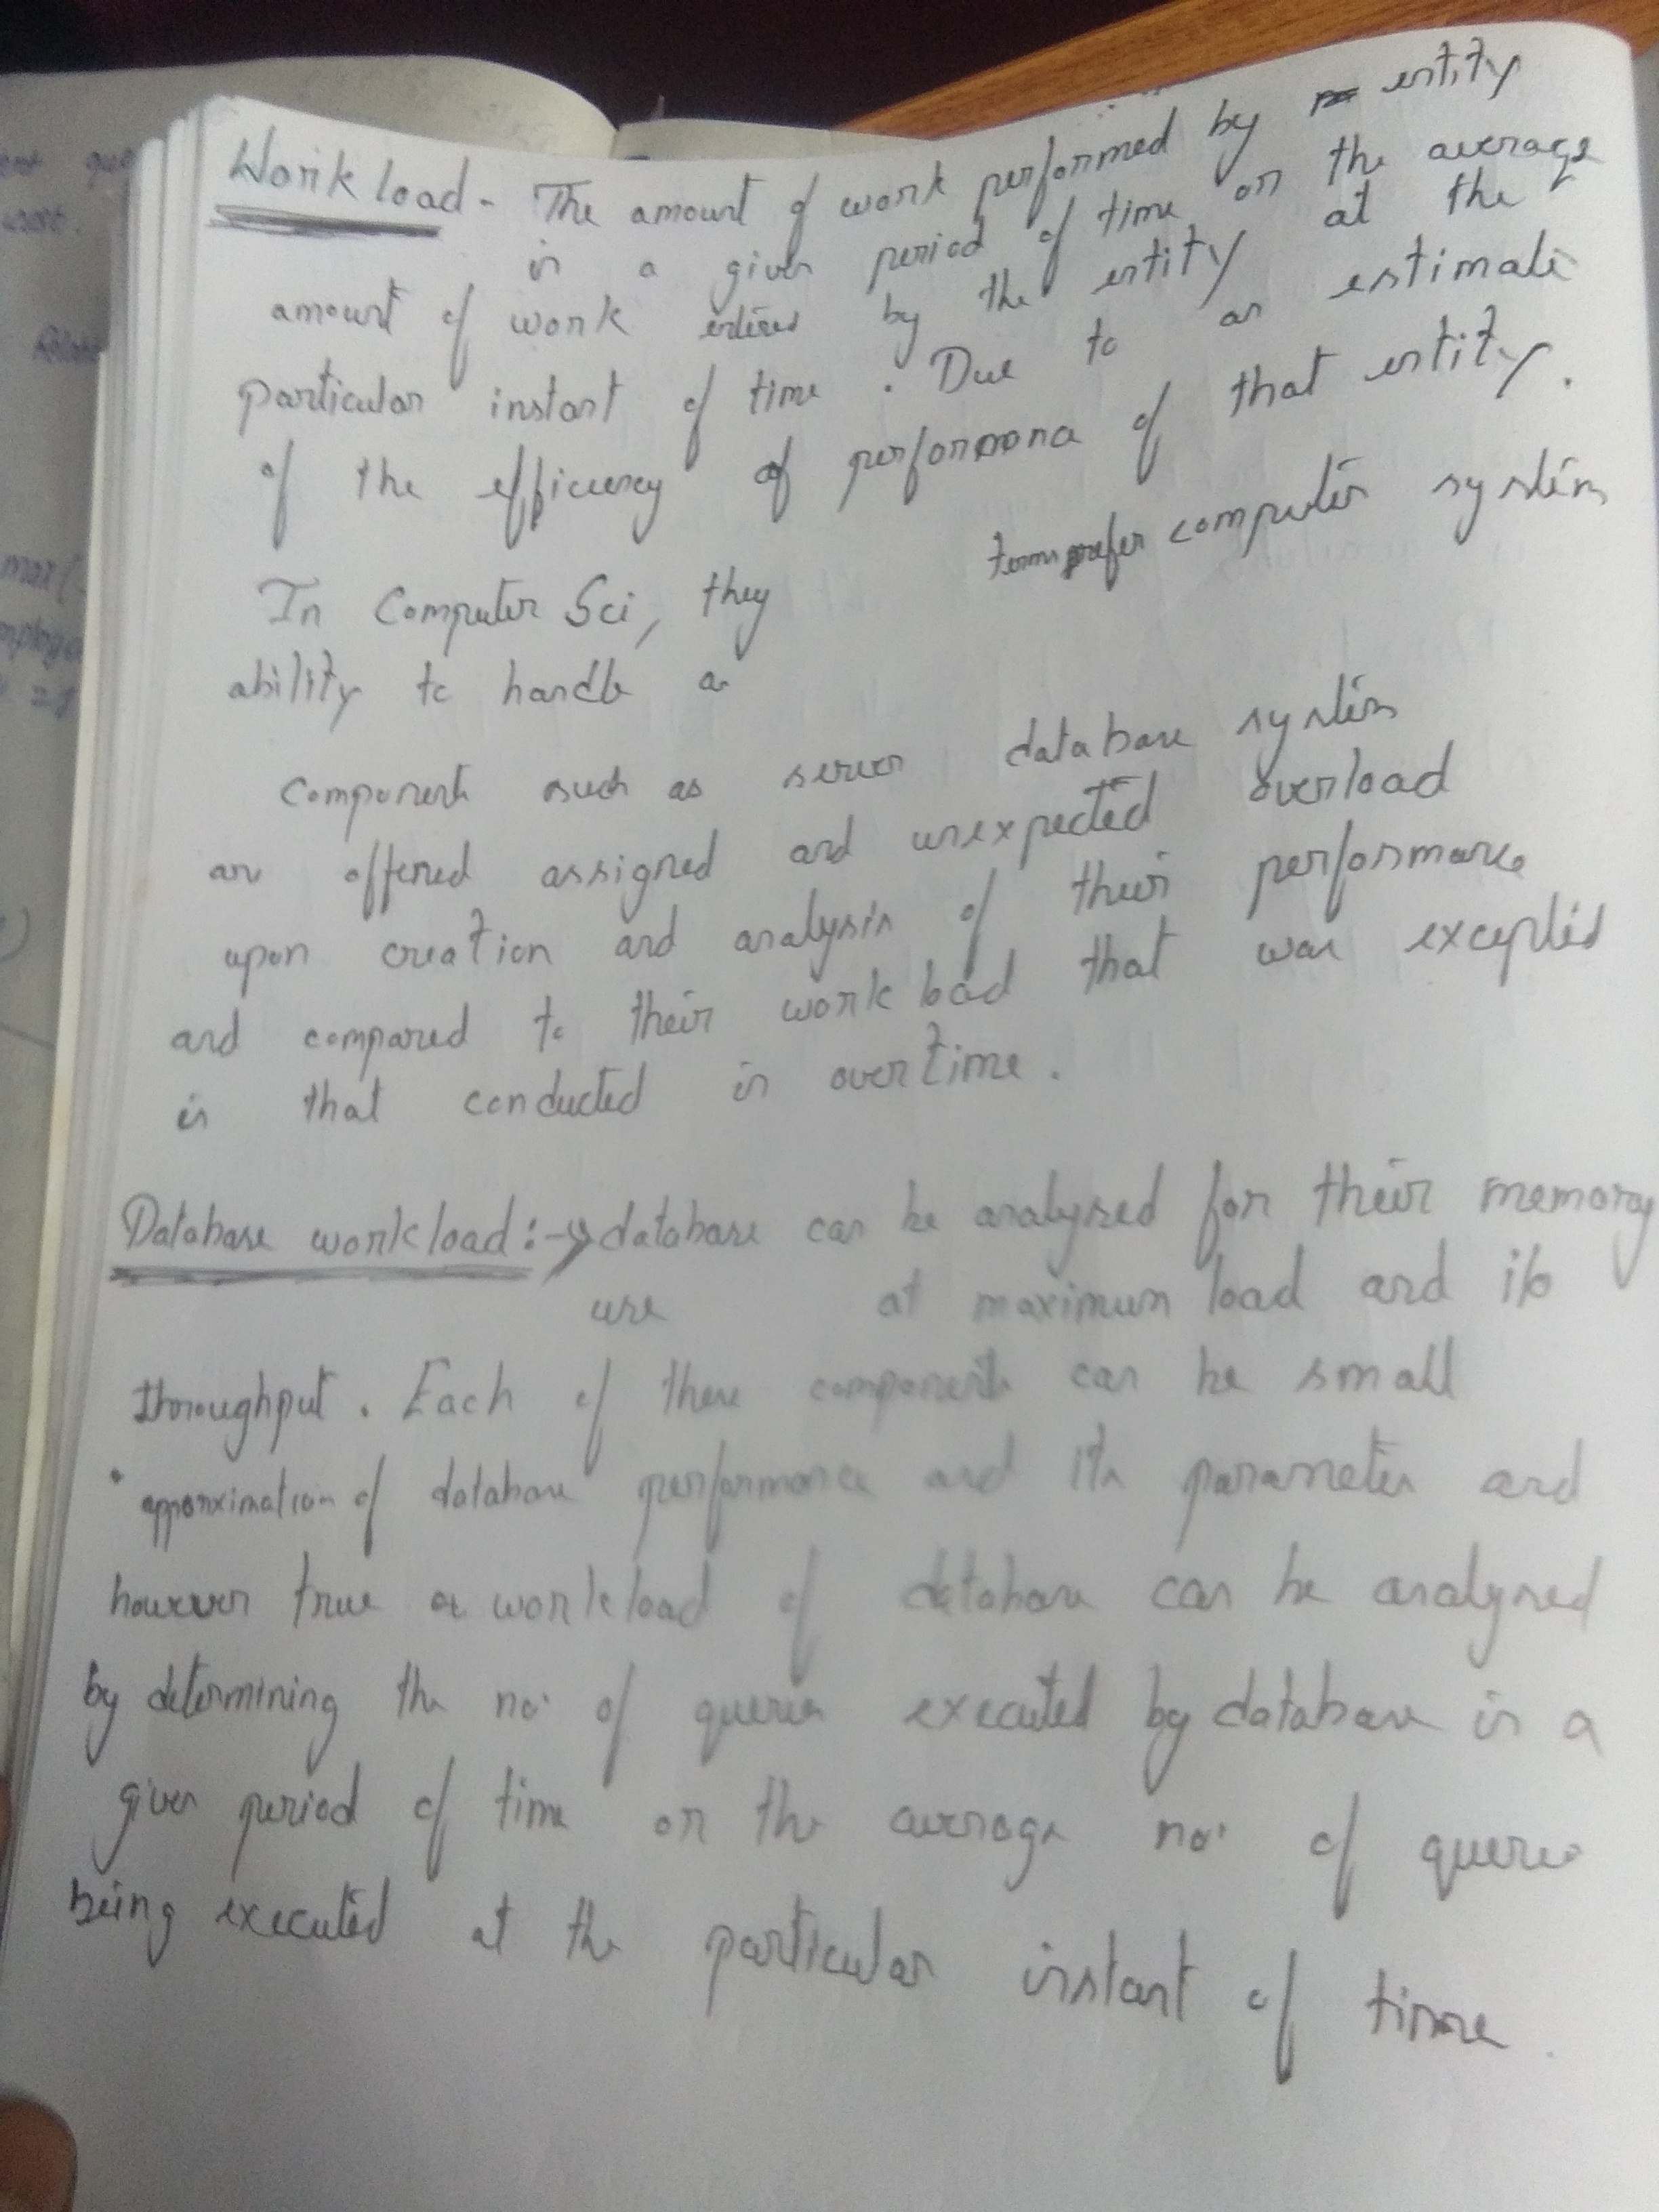 Work load - The amount of work performed by entity
in a given period of time or the average
amount of work by the entity at the
particular instant of time . Due to an estimate
of the efficiency of performana of that entity .
In Computer Sci, they term refer computer system
ability to handle a
Components such as server database system
are offered assigned and unexpected overload
upon creation and analysis of their performance
and compared to their work load that was excepted
is that conducted in overtime .
Database workload :-> database can be analysed for their memory
use at maximum load and i/o
throughput . Each of these components can be small
approximation of database performance and its parameter and
however true a workload of database can be analysed
by determining the no. of queries executed by database in a
given period of time or the average no. of queries
being executed at the particular instant of time .